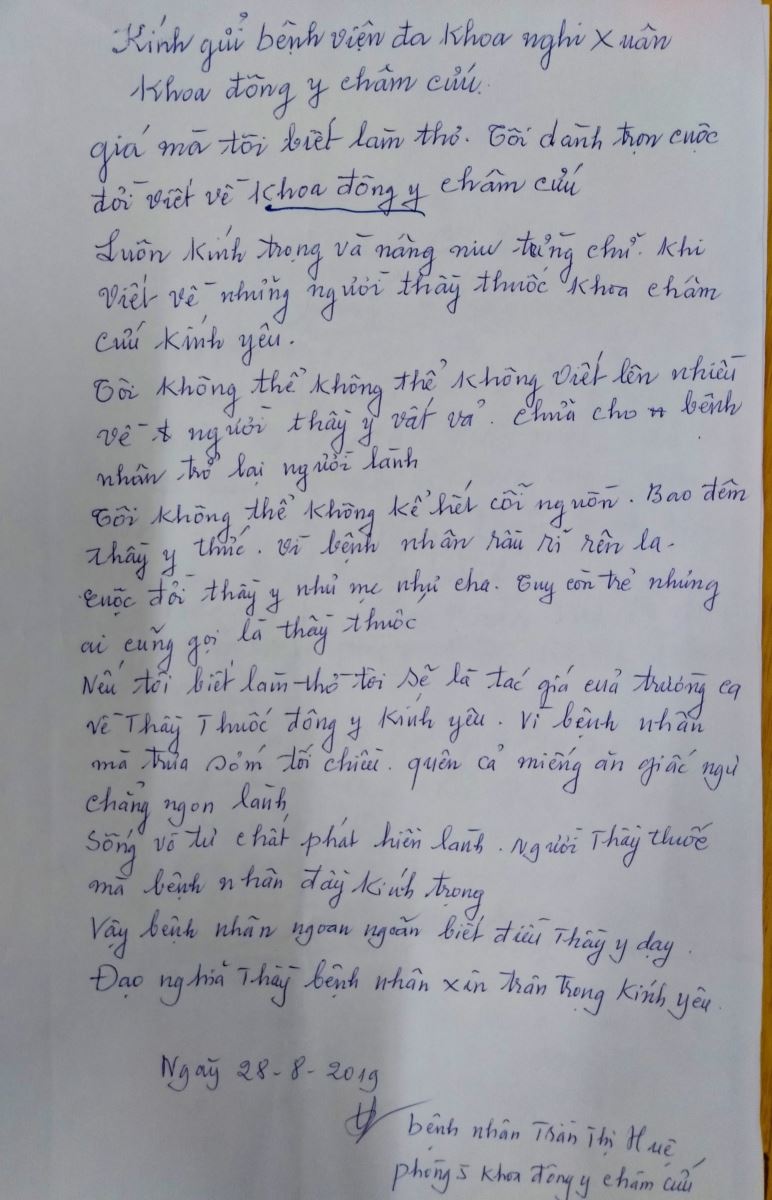 Kính gửi bệnh viện đa khoa nghi Xuân
Khoa đông y châm cứu.
giá mà tôi biết làm thơ. Tôi dành trọn cuộc
đời viết về khoa đông y châm cứu
Luôn kính trọng và nâng niu từng chữ. khi
Viết về những người thầy thuốc khoa châm
cứu kính yêu.
Tôi không thể không thể không viết lên nhiều
về người thầy y vất vả. chữa cho bệnh
nhân trở lại người lành
Tôi không thể không kể hết cội nguồn. Bao đêm
thầy y thức. vì bệnh nhân rầu rĩ rên la.
cuộc đời thầy y như mẹ như cha. Tuy còn trẻ nhưng
ai cũng gọi là thầy thuốc
Nếu tôi biết làm thơ tôi sẽ là tác giả của trường ca
về Thầy Thuốc đông y kính yêu. Vì bệnh nhân
mà trưa sớm tối chiều. quên cả miếng ăn giấc ngủ
chẳng ngon lành
Sống vô tư chất phát hiền lành. Người Thầy thuốc
mà bệnh nhân đầy kính trọng
Vậy bệnh nhân ngoan ngoãn biết điều Thầy y dạy.
Đạo nghĩa Thầy bệnh nhân xin trân trọng kính yêu.
Ngày 28-8-2019
bệnh nhân Trần Thị Huệ
phòng 5 khoa đông y châm cứu